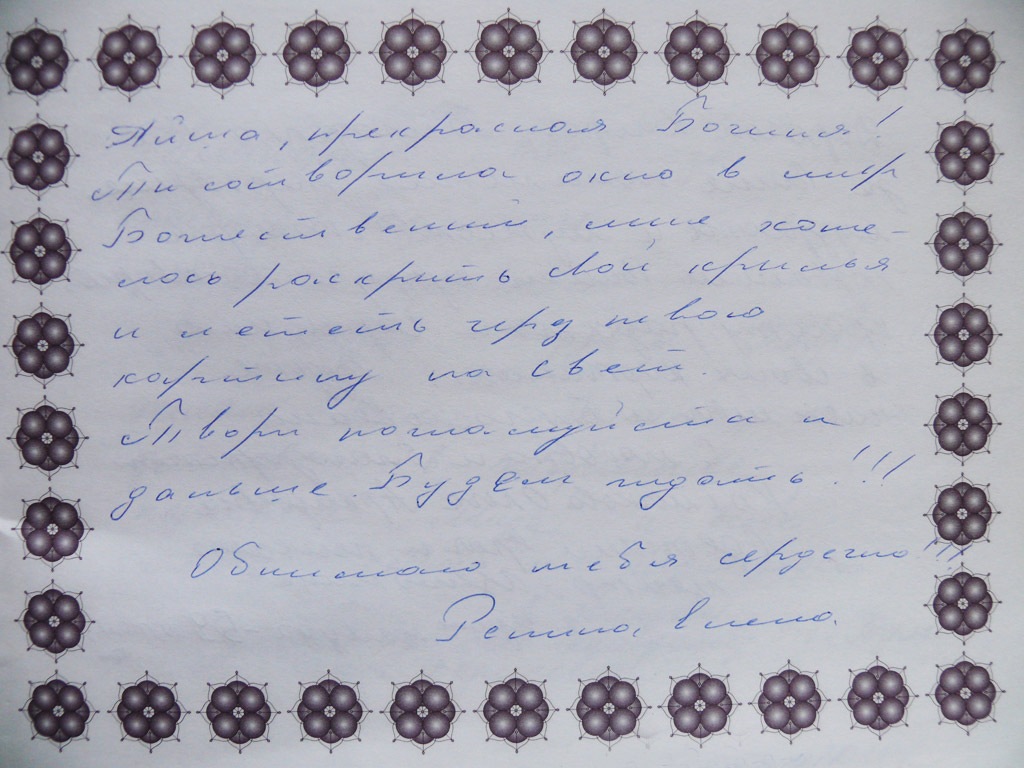 Айша, прекрасная Богиня!
Ты сотворила окно в мир
Божественный, мне хоте-
лось раскрыть свои крылья
и лететь через твою
картину на Свет.
Твори пожалуйста и
дальше. Будем ждать!!!
Обнимаю тебя сердечно!!!
Елена